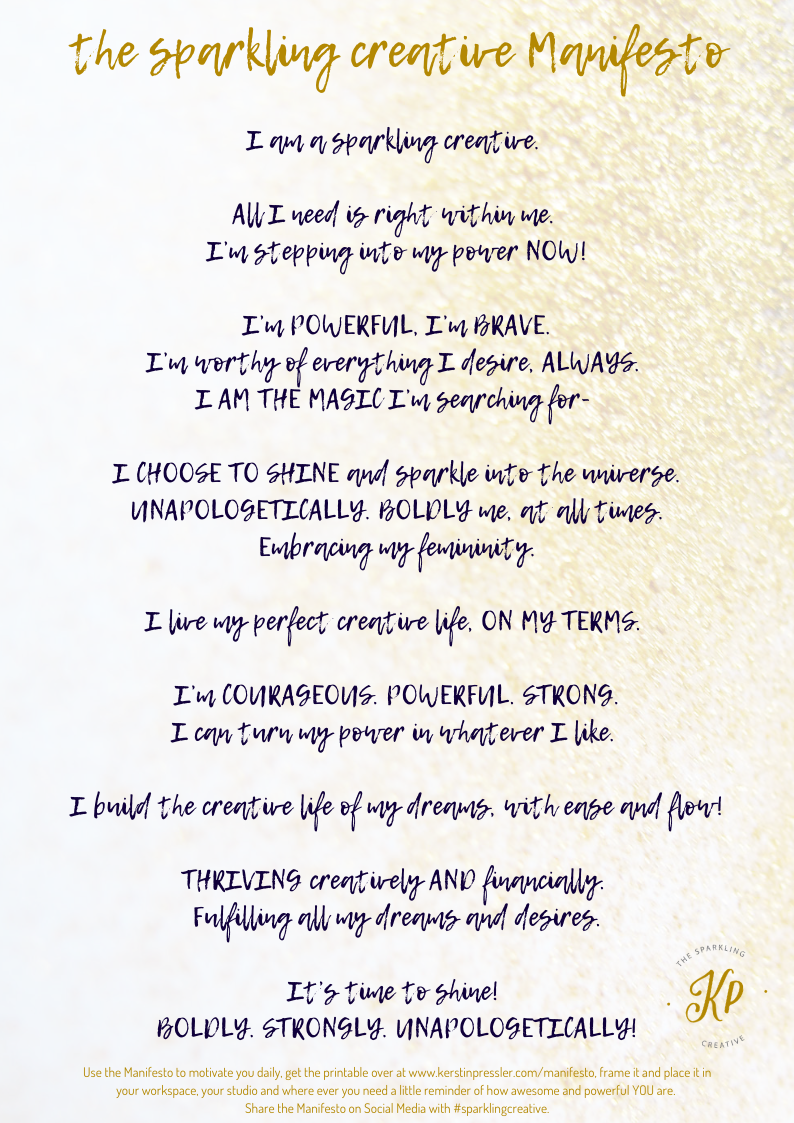 the sparkling creative Manifesto
I am a sparkling creative.
All I need is right within me.
I'm stepping into my power NOW!
I'm POWERFUL, I'm BRAVE.
I'm worthy of everything I desire, ALWAYS.
I AM THE MAGIC I'm searching for-
I CHOOSE TO SHINE and sparkle into the universe.
UNAPOLOGETICALLY. BOLDLY me, at all times.
Embracing my femininity.
I live my perfect creative life, ON MY TERMS.
I'm COURAGEOUS. POWERFUL. STRONG.
I can turn my power in whatever I like.
I build the creative life of my dreams, with ease and flow!
THRIVING creatively AND financially.
Fulfilling all my dreams and desires.
It's time to shine!
BOLDLY. STRONGLY. UNAPOLOGETICALLY!
THE SPARKLING
KP
CREATIVE
Use the Manifesto to motivate you daily, get the printable over at www.kerstinpressler.com/manifesto, frame it and place it in
your workspace, your studio and where ever you need a little reminder of how awesome and powerful YOU are.
Share the Manifesto on Social Media with #sparklingcreative.